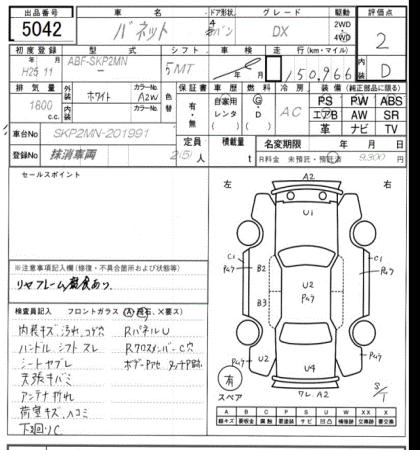 出品番号 車名 ドア形状 グレード 駆動 評価点
5042 バネット 4 バン DX 2WD 4WD 2
初度登録 型式 シフト 車検 走行(km・マイル) 内装
年 月 H25 11 ABF-SKP2MN 5MT 年 月 150,966 D
排気量 外装 カラーNo. 色替 保証書 車歴 燃料 冷房 装備(純正部品に限る)
1800 c.c. ホワイト A2W 有・無 自家用 レンタ G・D AC PS PW ABS
内装 カラーNo. ( ) エアB AW SR
革 ナビ TV
車台No SKP2MN-201991 定員 積載量 名変期限 年 月 日
登録No 抹消車両 2(5)人 t R料金 未預託・預託済 9,300 円
セールスポイント
左 A2 右
U1
C1 P47 B2 U2 P47 C1 P47
B3
※注意事項記入欄(修復・不具合箇所および状態等)
リヤフレーム腐食あり
検査員記入 フロントガラス(A・飛石、×要ス)
内装キズ、汚れ、コゲ穴 RパネルU
ハンドル シフト スレ RクロスメンバーC穴
シートヤブレ
天張キバミ
アンテナ折れ
荷室キズ、ヘコミ
下廻りC
P47 U2 P47
有 スペア U4
フレ A2 S/T
A B C P S U W X XX
線キズ 要板金 腐蝕 要塗装 サビ 凹 補修跡 要交換 交換済